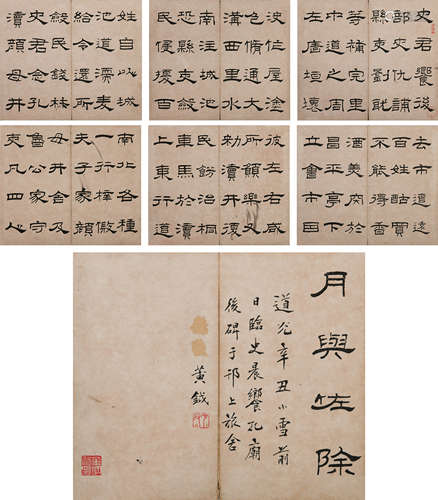 史君饗後
部史仇誧
縣吏劉耽
等補完里
中道之周
左廧垣壞
決作屋塗
色脩通大
溝西里水
南注城池
恐縣吏斂
民侵擾百
姓自以城
池道濡麥
給令還所
斂民錢材
史君念孔
瀆顏母井
去市遼遠
百姓酤買
不能得香
酒美肉於
昌平亭下
立會市因
彼左右咸
所願樂又
勑瀆井復
民餝治桐
車馬於瀆
上東行道
南北各種
一行梓假
夫子冢顏
母井舍及
魯公冢守
吏凡四人
月與佐除
道光辛丑小雪前
日臨史晨饗孔廟
後碑于邗上旅舍
黃鉞